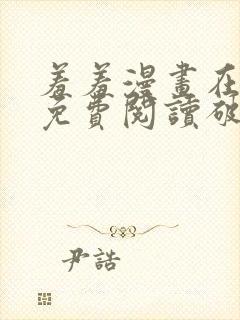 羞羞漫畫在
免費閱讀破
尹誥